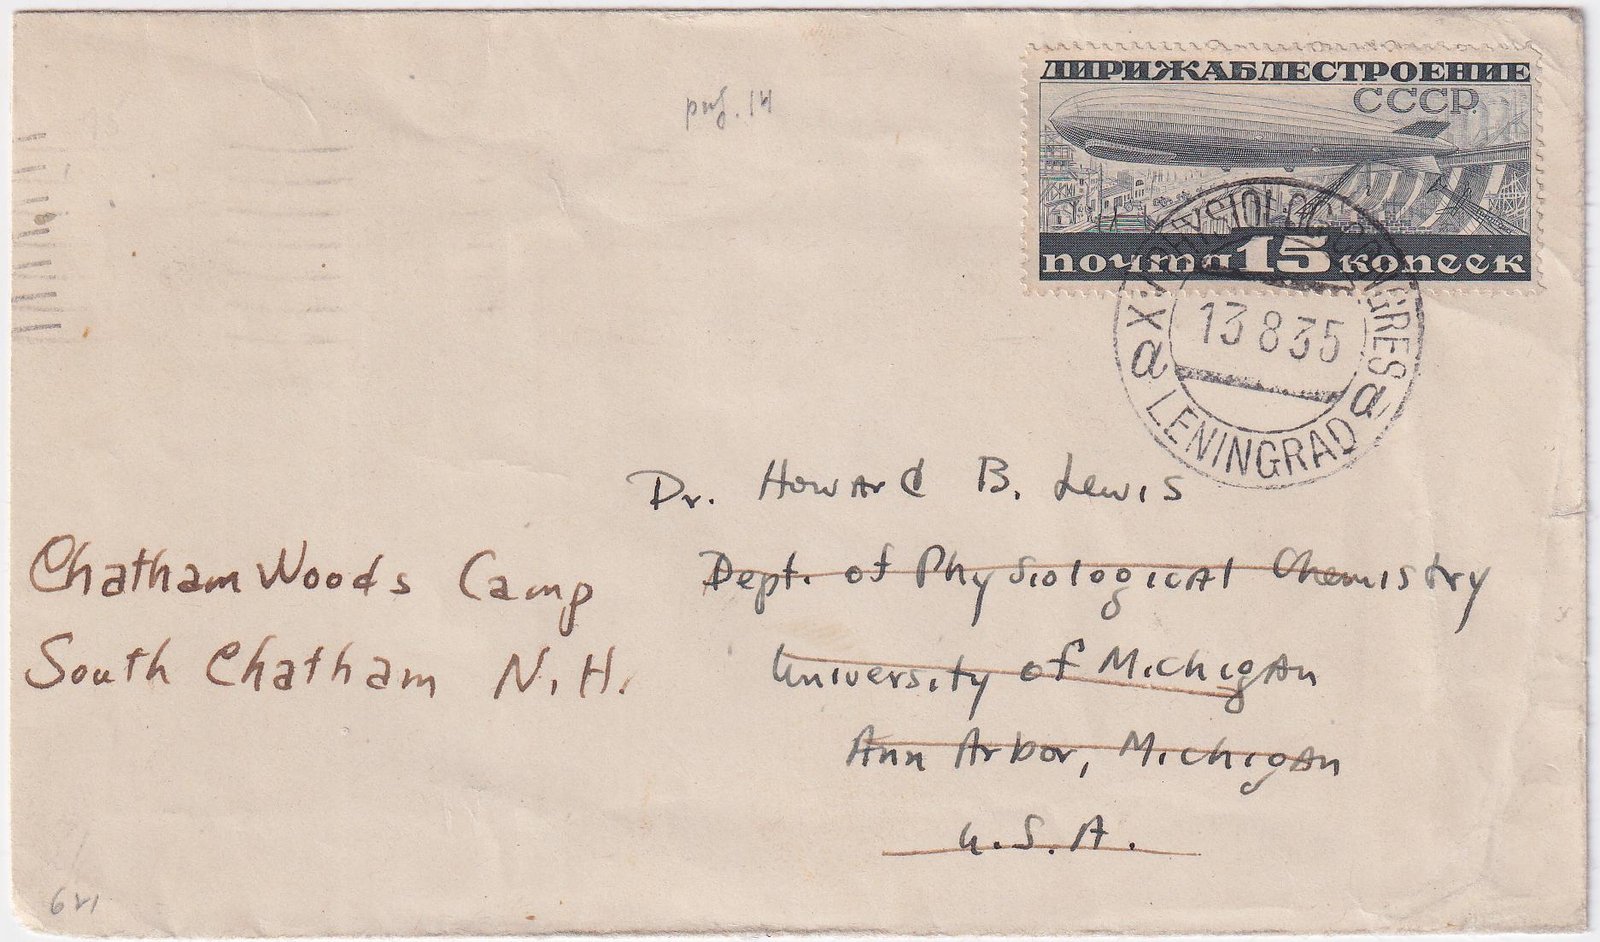 ДИРИЖАБЛЕСТРОЕНИЕ
СССР.
почта 15 копеек
PHYSIOLOG. CONGRES
13 8 35
a a
LENINGRAD
Dr. Howard B. Lewis
Dept. of Physiological Chemistry
University of Michigan
Ann Arbor, Michigan
U.S.A.
Chatham Woods Camp
South Chatham N.H.